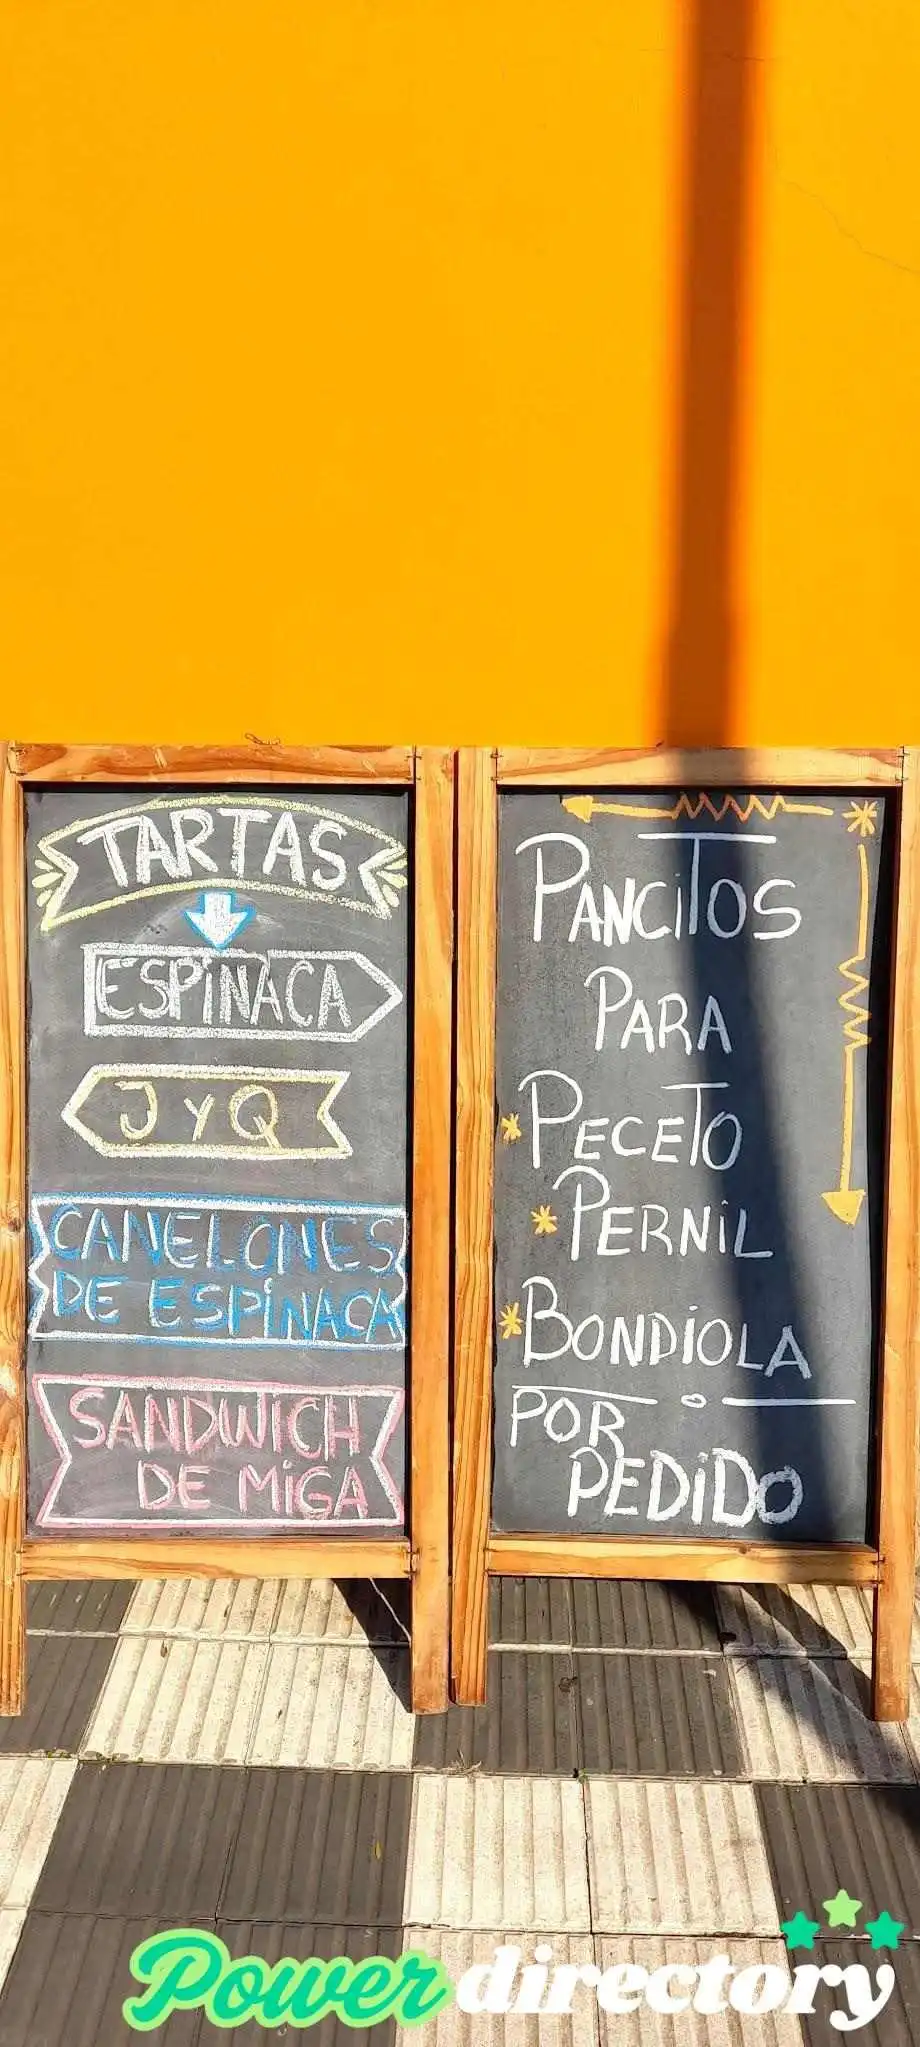 TARTAS
ESPiNACA
J y Q
CANELONES
DE ESPiNACA
SANDWiCH
DE MiGA
PANCiTOS
PARA
PECETO
PERNiL
BONDiOLA
POR
PEDiDO
Power directory